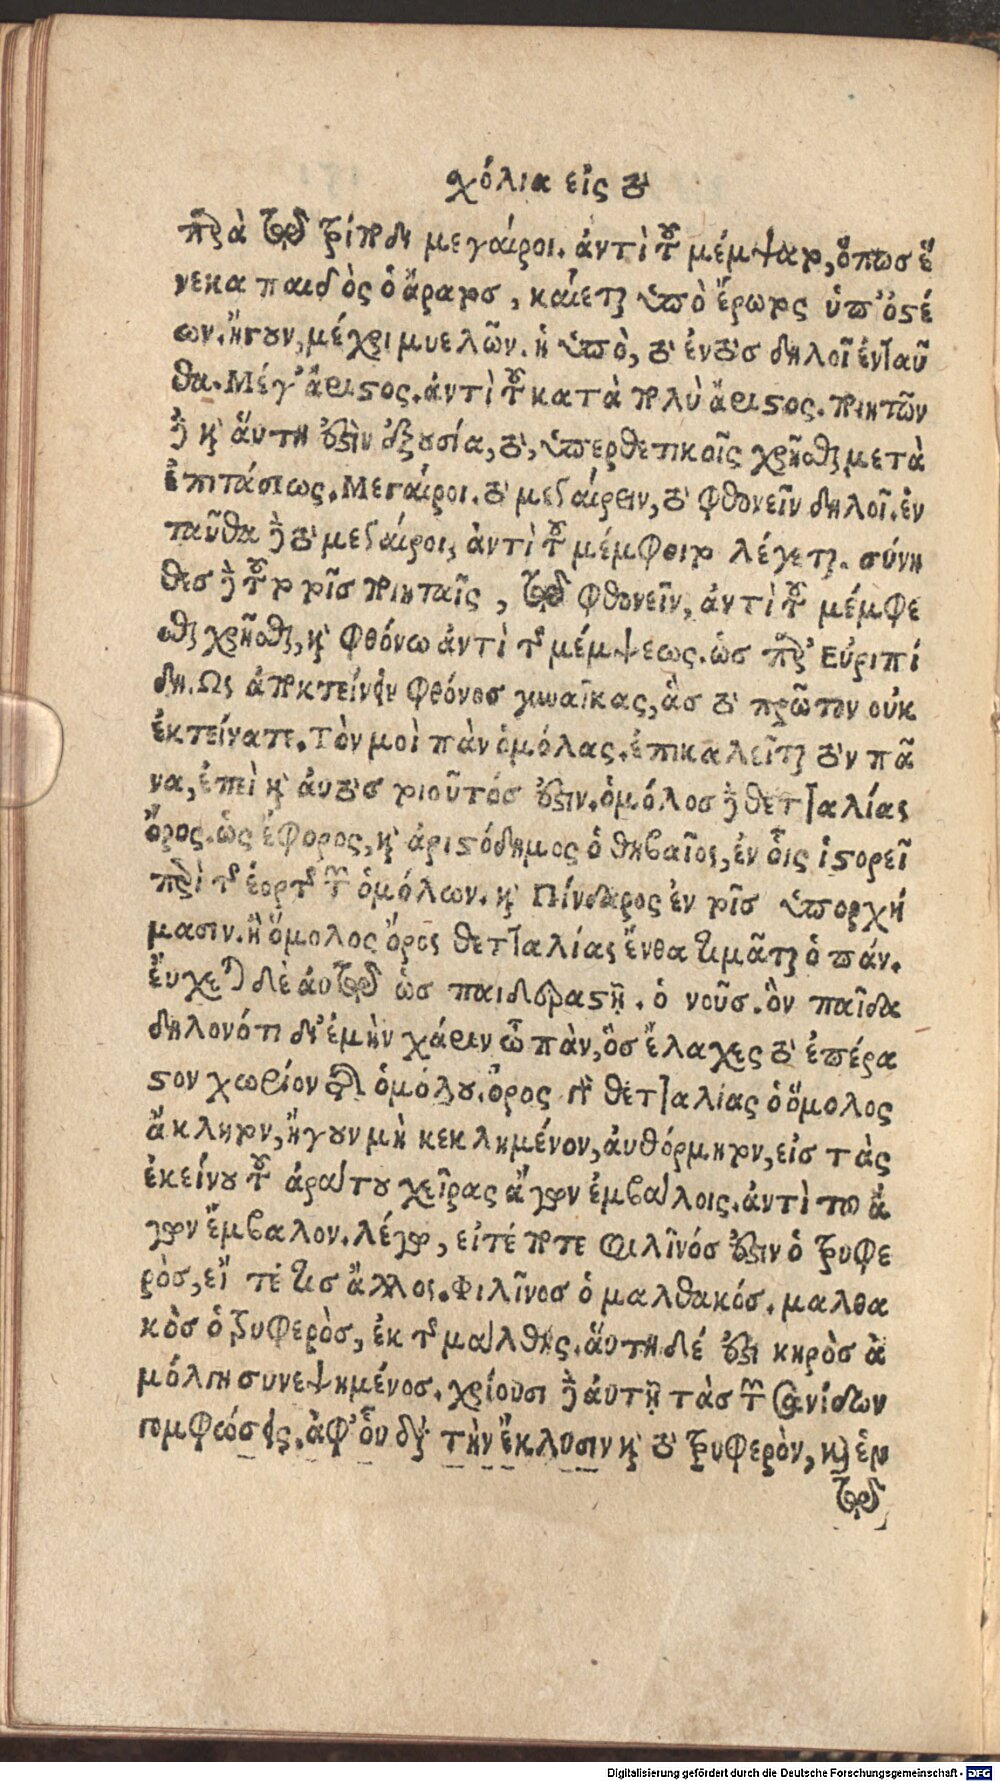 χόλια εἰς τὸ
παρὰ τοῦ τρίποδι μεγαίροι. ἀντὶ τοῦ μέμψαιτο, ὅπωσ ἕ
νεκα παιδὸς ὁ ἄρατοσ, καίεται ὑπὸ ἔρωτος ὑπ' ὀστέ
ων. ἤγουν, μέχρι μυελῶν. ἡ ὑπὸ, τὸ ἐντὸσ δηλοῖ ἐνταῦ
θα. Μέγ' ἄριστος. ἀντὶ τοῦ κατὰ πολὺ ἄριστος. ποιητῶν
δὲ καὶ ἅυτη ἐστὶν ἐξουσία, τὸ, ὑπερθετικοῖς χρῆσθαι μετὰ
ἐπιτάσεως. Μεγαίροι. τὸ μεγαίρειν, τὸ φθονεῖν δηλοῖ. ἐν
ταῦθα δὲ τὸ μεγαίροι, ἀντὶ τοῦ μέμφοιτο λέγεται. σύνη
θεσ δὲ τοῦτο τοῖσ ποιηταῖς, τοῦ φθονεῖν, ἀντὶ τοῦ μέμφε
σθαι χρῆσθαι, καὶ φθόνω ἀντὶ τῆς μέμψεως. ὡσ παρ' Εὐριπί
δη. Ως ἀποκτείνειν φθόνοσ γυναῖκας, ἃσ τὸ πρῶτον οὐκ
ἐκτείνατε. Τὸν μοὶ πὰν ὁμόλας. ἐπικαλεῖται τὸν πᾶ
να, ἐπεὶ καὶ ἀυτὸσ τοιοῦτόσ ἐστιν. ὁμόλοσ δὲ θετταλίας
ὄρος. ὡς ἔφορος, καὶ ἀριστόδημος ὁ θηβαῖος, ἐν οἷς ἱστορεῖ
περὶ τῆς ἑορτῆς τῶν ὁμόλων. καὶ Πίνδαρος ἐν τοῖσ ὑπορχή
μασιν. ἢ ὅμολος ὄρος θετταλίας ἔνθα τιμᾶται ὁ πάν.
ἔυχεται δὲ ἀυτοῦ ὡσ παιδεραστῆ. ὁ νοῦσ. ὃν παῖδα
δηλονότι δι' ἐμὴν χάριν ὦ πὰν, ὃσ ἔλαχες τὸ ἐπέρα
στον χωρίον τοῦ ὁμόλου. ὄρος γὰρ θετταλίας ὁ ὅμολος
ἄκλητον, ἤγουν μὴ κεκλημένον, ἀυθόρμητον, εἰσ τὰς
ἐκείνου τοῦ ἀράτου χεῖρας ἄγων ἐμβάλοις. ἀντὶ του ἄ
γων ἔμβαλον. λέγω, εἰτέ ποτε φιλῖνόσ ἐστιν ὁ τρυφε
ρὸσ, εἴ τέ τισ ἄλλος. Φιλῖνοσ ὁ μαλθακόσ. μαλθα
κὸσ ὁ τρυφερὸσ, ἐκ τῆς μάλθης. ἅυτη δέ ἐστι κηρὸσ ἀ
μόλγη συνεψημένοσ. χρίουσι δὲ ἀυτῆ τὰσ τῶν σανίδων
γομφώσεις. ἀφ' οὗ διὰ τὴν ἔκλυσιν καὶ τὸ τρυφερὸν, καὶ ἐπὶ
τοῦ